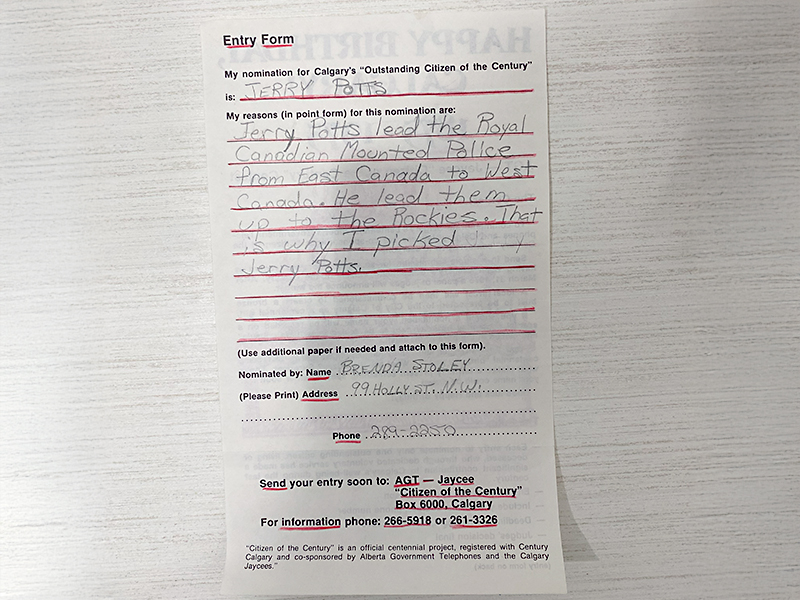 Entry Form
My nomination for Calgary's "Outstanding Citizen of the Century"
is: JERRY POTTS
My reasons (in point form) for this nomination are:
Jerry Potts lead the Royal
Canadian Mounted Police
from East Canada to West
Canada. He lead them
up to the Rockies. That
is why I picked
Jerry Potts.
(Use additional paper if needed and attach to this form).
Nominated by: Name BRENDA STOLEY
(Please Print) Address 99 HOLLY ST. N.W.
Phone 289-2250
Send your entry soon to: AGT — Jaycee
"Citizen of the Century"
Box 6000, Calgary
For information phone: 266-5918 or 261-3326
"Citizen of the Century" is an official centennial project, registered with Century
Calgary and co-sponsored by Alberta Government Telephones and the Calgary
Jaycees."